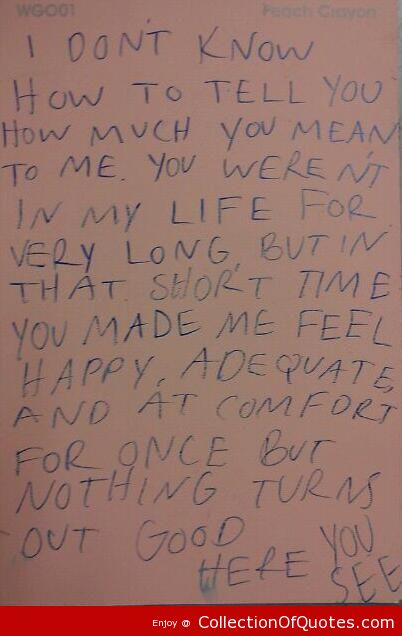 WGO01 Peach Crayon
I DON'T KNOW
HOW TO TELL YOU
HOW MUCH YOU MEAN
TO ME. YOU WEREN'T
IN MY LIFE FOR
VERY LONG, BUT IN
THAT SHORT TIME
YOU MADE ME FEEL
HAPPY, ADEQUATE,
AND AT COMFORT
FOR ONCE BUT
NOTHING TURNS
OUT GOOD YOU
HERE SEE
Enjoy @ CollectionOfQuotes.com